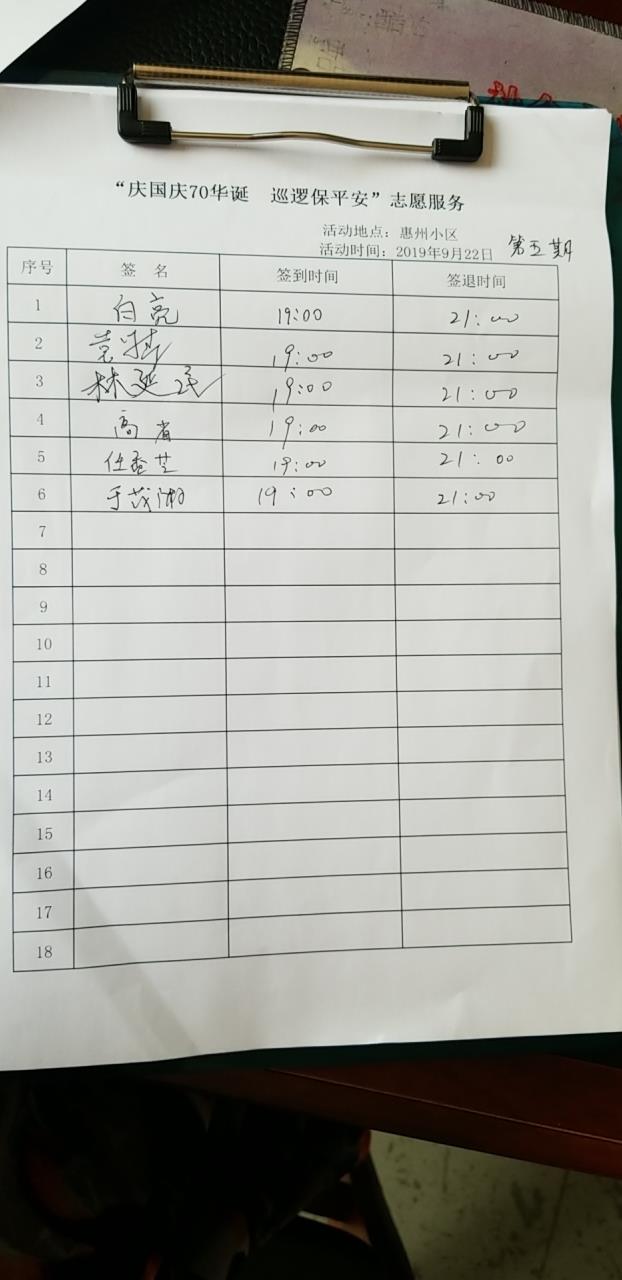 “庆国庆70华诞 巡逻保平安”志愿服务
活动地点：惠州小区
活动时间：2019年9月22日 第五期
序号 签 名 签到时间 签退时间
1 白亮 19:00 21:00
2 19:00 21:00
3 林延民 19:00 21:00
4 高省 19:00 21:00
5 任 芝 19:00 21:00
6 于茂湘 19:00 21:00
7
8
9
10
11
12
13
14
15
16
17
18